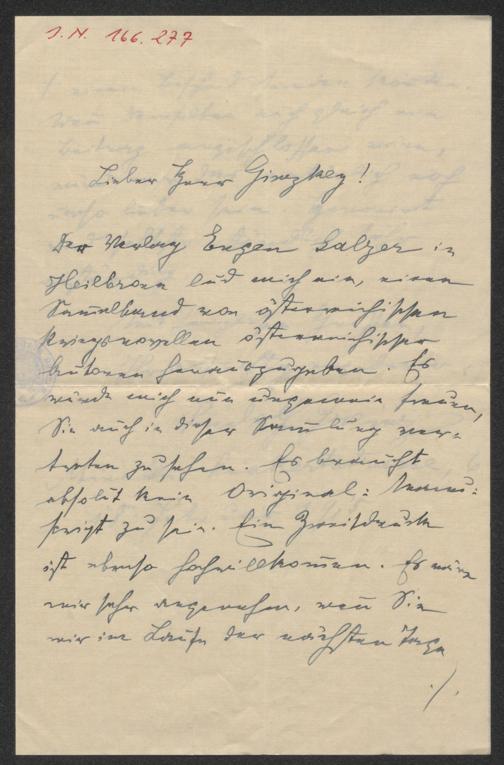 I. N. 166.277
Lieber Herr Ginzkey!
Der Verlag Eugen Salzer in
Heilbronn lud mich ein, einen
Sammelband von österreichischen
Kriegsnovellen österreichischer
Autoren herauszugeben. Es
würde mich nun ungemein freuen,
Sie auch in dieser Sammlung ver-
treten zu sehen. Es braucht
absolut kein Original-Manu-
skript zu sein. Ein Zweitdruck
ist ebenso hochwillkommen. Es wäre
mir sehr angenehm, wen̄ Sie
mir im Laufe der nächsten Tage
./.